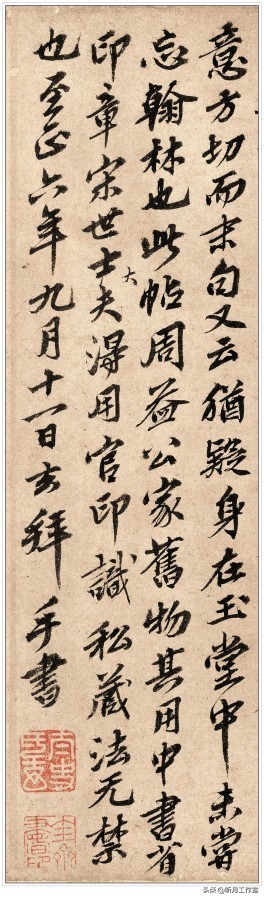 意方切而末句又云猶疑身在玉堂中未嘗
忘翰林也此帖周益公家舊物其用中書省
印章宋世士大夫得用官印識私藏法无禁
也至正六年九月十一日玄拜手書
头条@听月工作室